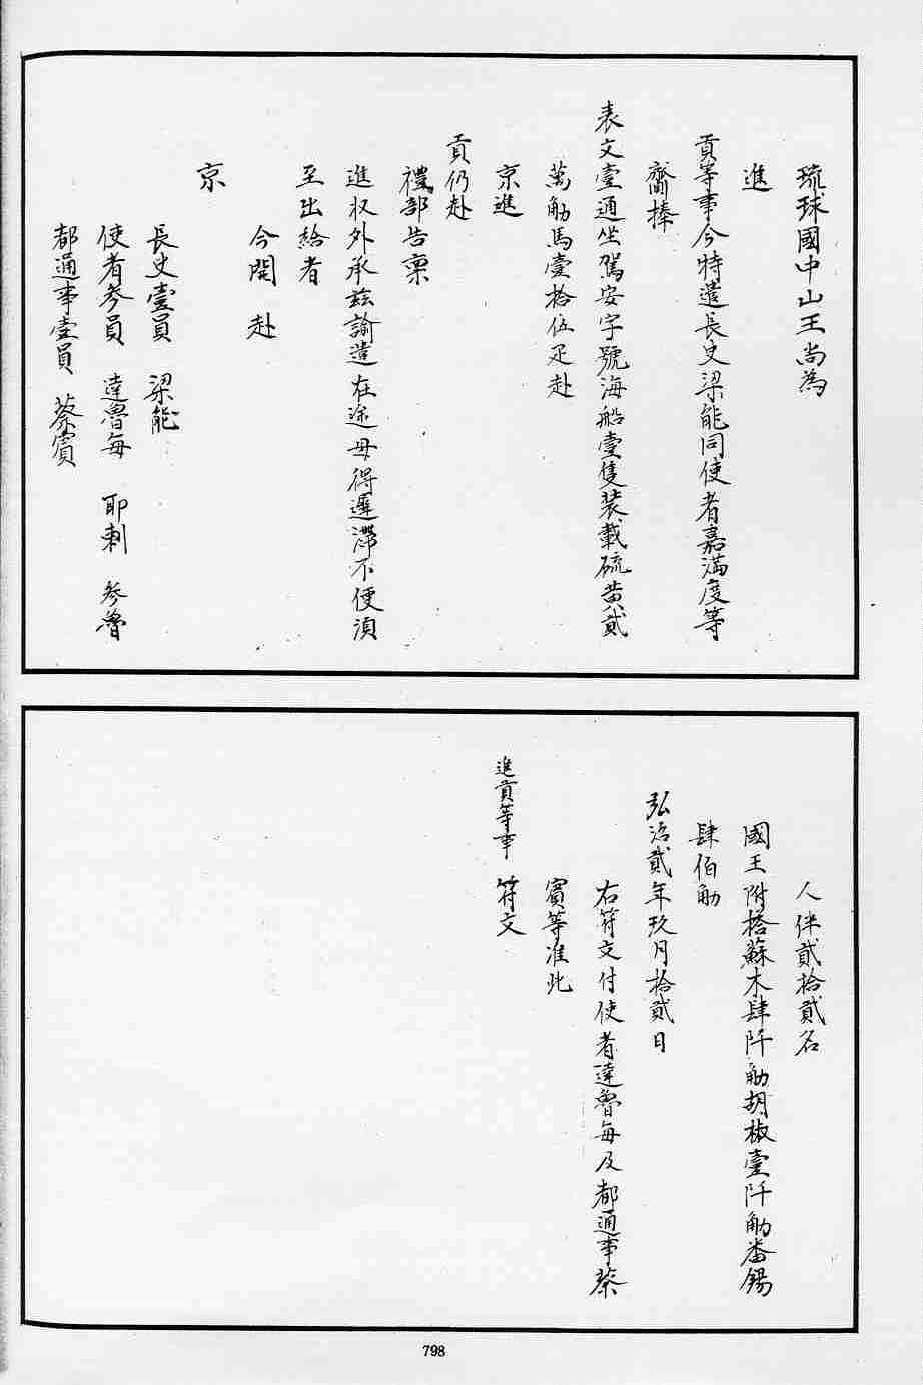 琉球國中山王尚為
進
貢等事今特遣長史梁能同使者嘉滿度等
齎捧
表文壹通坐駕安字號海船壹隻装載硫黄貳
萬觔馬壹拾伍疋赴
京進
貢仍赴
禮部告稟
進収外承茲諭遣在途毋得遲滯不便湏
至出給者
今開 赴
京
長史壹員 梁能
使者叁員 達魯每 耶刺 参魯
都通事壹員 蔡賓
人伴貳拾貳名
國王附搭蘇木肆阡觔胡椒壹阡觔番錫
肆伯觔
弘治貳年玖月拾貳日
右符文付使者達魯每及都通事蔡
賓等准此
進貢等事 符文
798